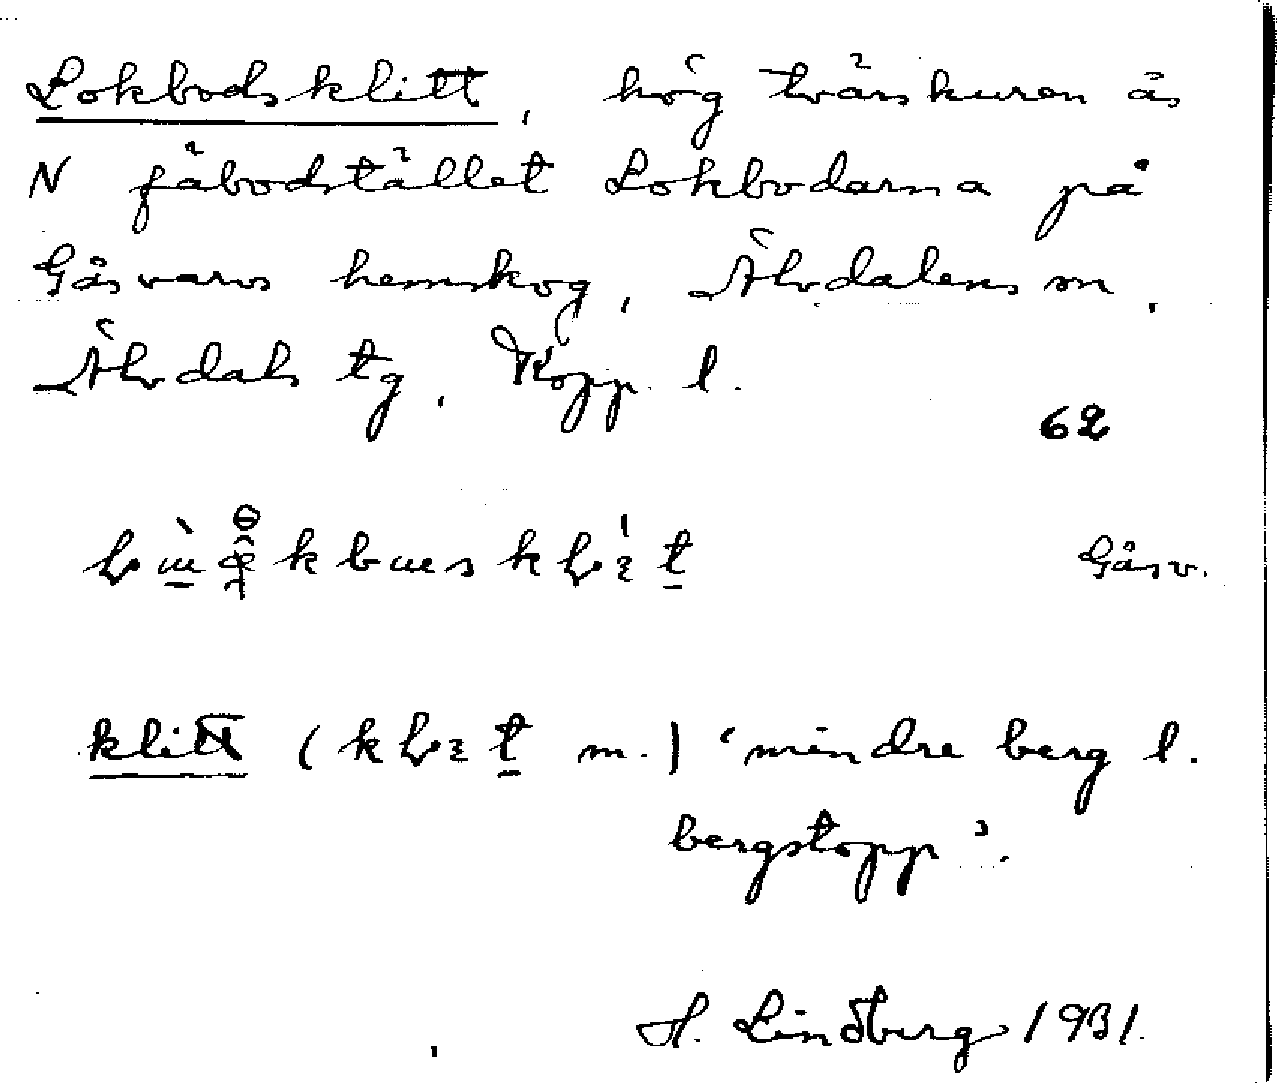 Lokbodsklitt, hög tvärskuren ås
N fäbodstället Lokbodarna på
Gåsvarvs hemskog, Älvdalens sn,
Älvdals tg, Kopp. l.
62
Gåsv.
klitt (m.) ‘mindre berg l.
bergstopp’.
H. Lindberg 1931.